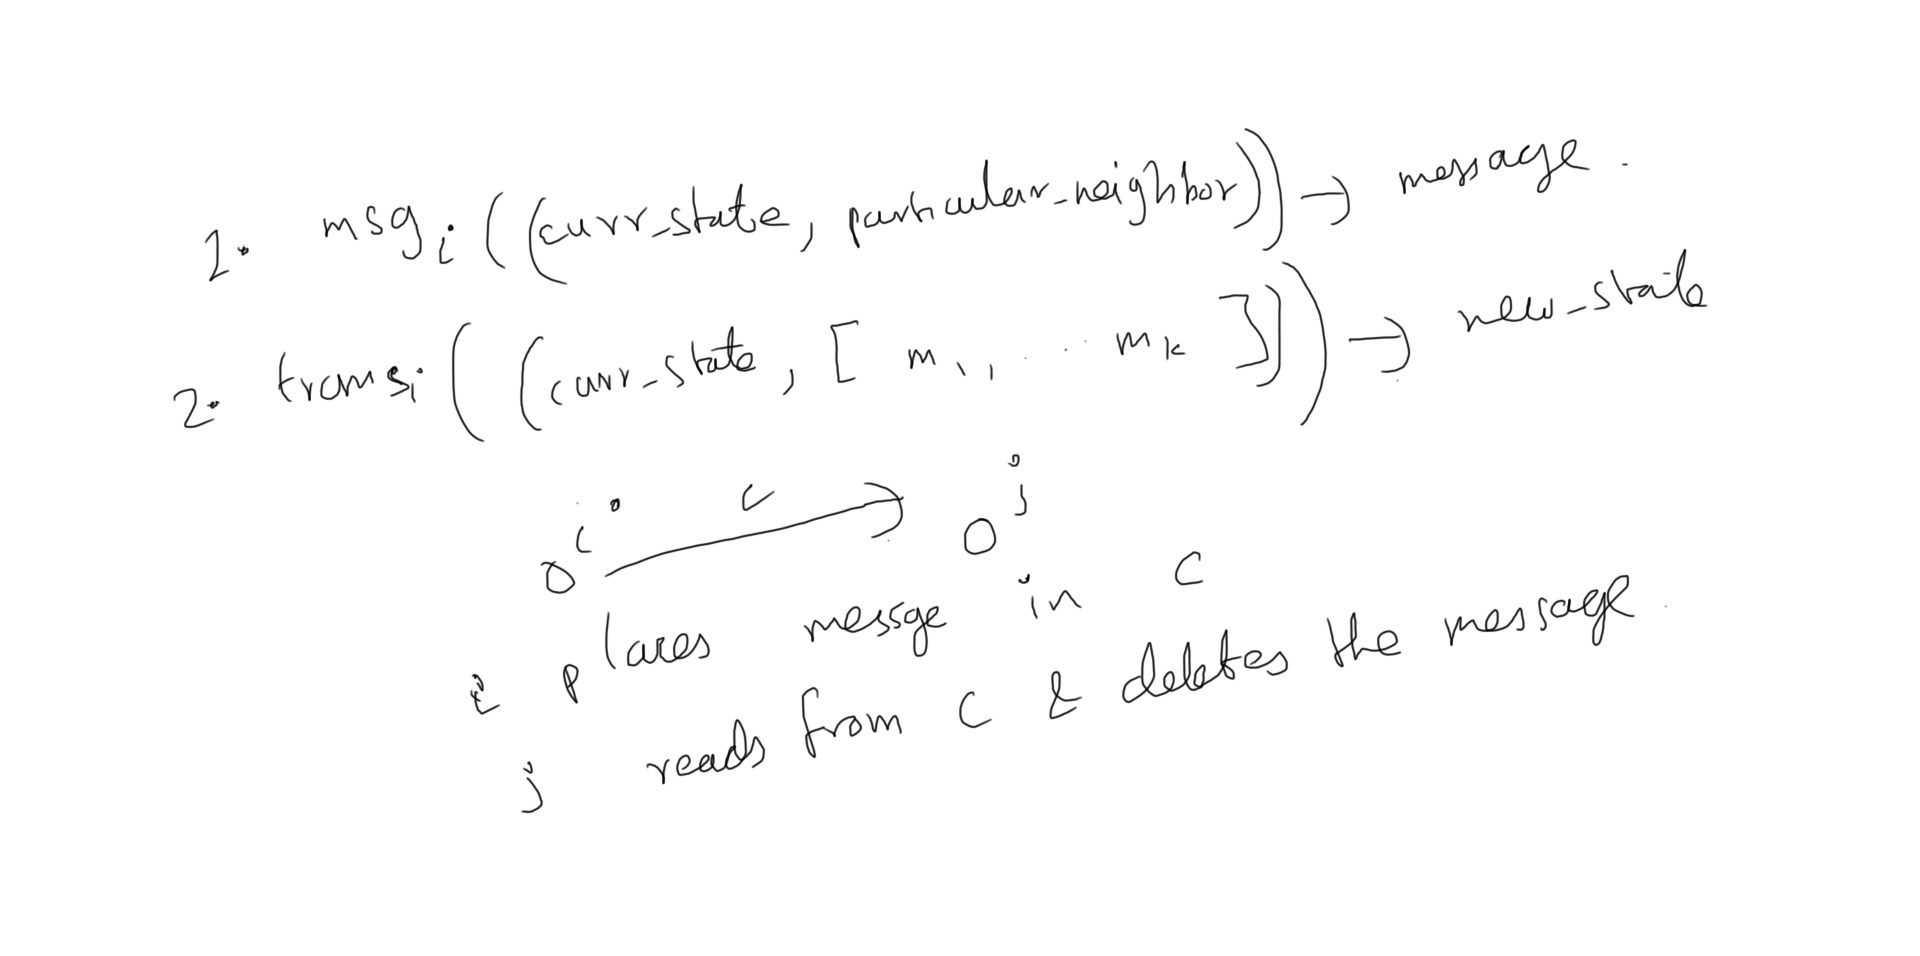 1. msg i ((curr_state, particular_neighbor)) → message.
2. trans i ((curr_state, [ m1, ... mk ])) → new_state
i c j
i places messge in c
j reads from c & deletes the message.